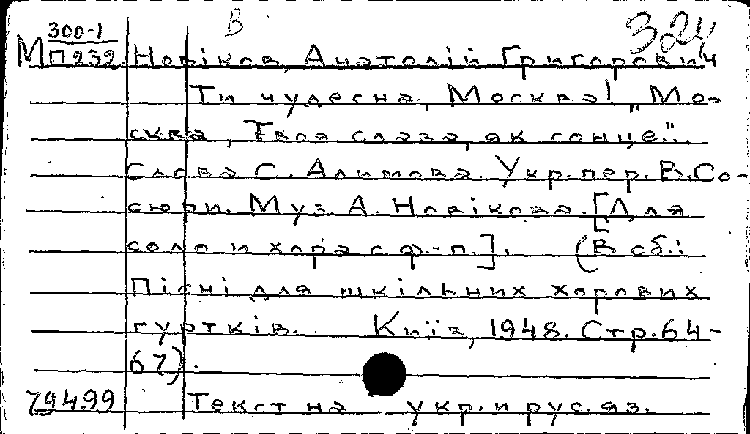 В
324
М 300-1
П232 Новіков, Анатолій Григорович
Ти чудесна, Москва! „Мо-
сква, Твоя слава, як сонце".
Слова С. Алимова. Укр. пер. В. Со-
сюри. Муз. А. Новікова. [Для
соло и хора с ф-п.]. (В сб.:
Пісні для шкільних хорових
гуртків. Київ, 1948. Стр. 64-
67).
79499 Текст на укр. и рус. яз.